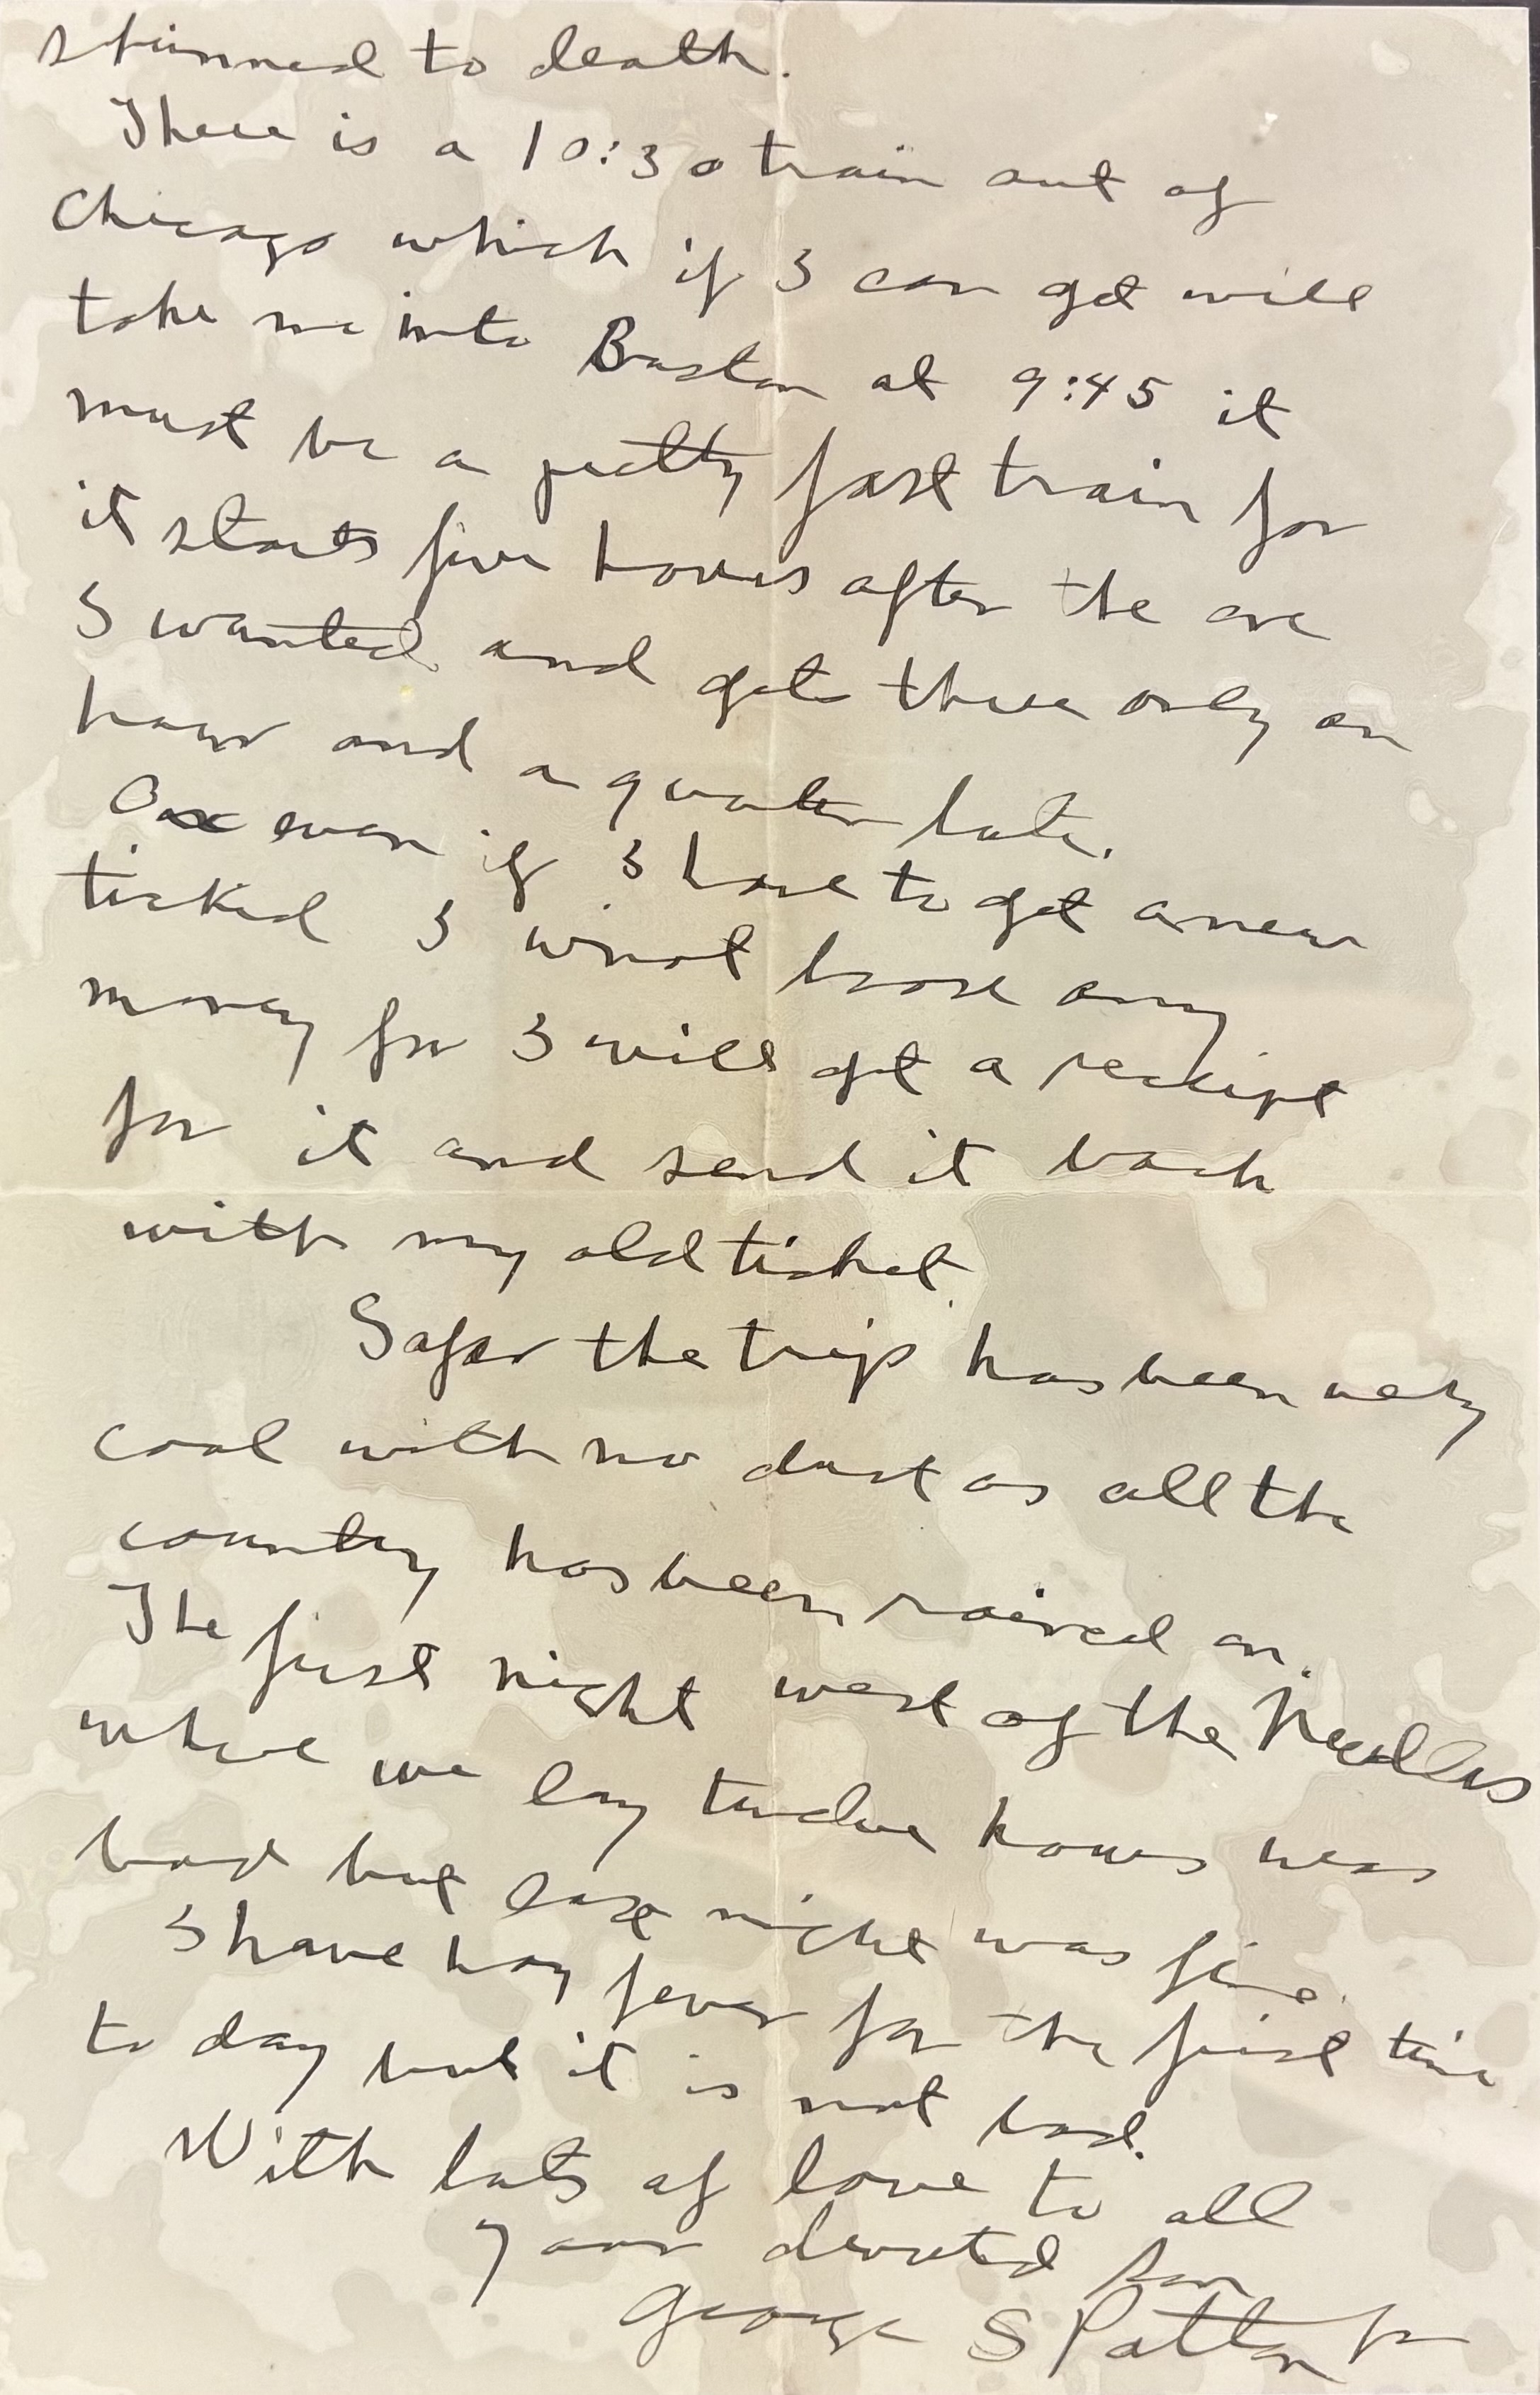 stunned to death.
There is a 10:30 train out of
Chicago which if I can get will
take me into Boston at 9:45 it
must be a pretty fast train for
it starts five hours after the one
I wanted and gets there only an
hour and a quater late.
even if I have to get a new
ticked I wnot loose any
money for I will get a reciept
for it and send it back
with my old ticket.
Safar the trip has been very
cool with no dust as all the
country has been rained on.
The first night west of the Needles
where we lay twelve hours was
bad but last night was fine.
I have hay fever for the first time
to day but it is not bad.
With lots of love to all
your devoted son
George S Patton Jr